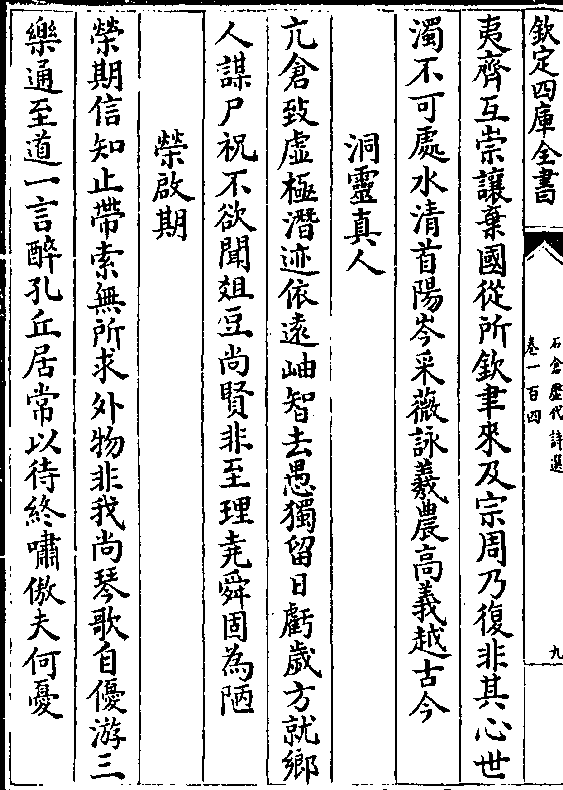 欽定四庫全書
石倉歷代詩選
卷一百四
九
夷齊互崇讓棄國從所欽聿來及宗周乃復非其心世
濁不可處水清首陽岑采薇詠羲農高義越古今
洞靈真人
亢倉致虛極潛迹依遠岫智去愚獨留日虧歲方就鄉
人謀尸祝不欲聞俎豆尚賢非至理堯舜固為陋
榮啟期
榮期信知止帶索無所求外物非我尚琴歌自優游三
樂通至道一言醉孔丘居常以待終嘯傲夫何憂